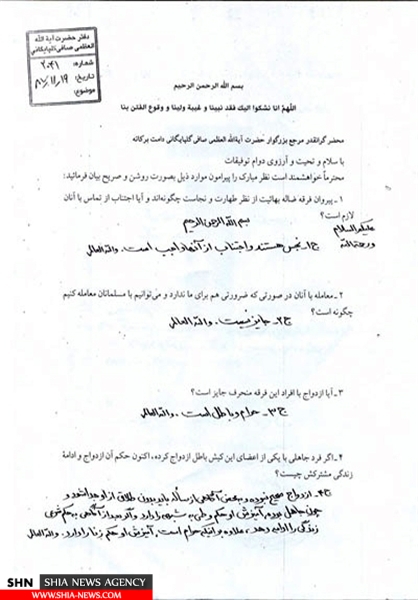 دفتر حضرت آیة الله
العظمی صافی گلپایگانی
شماره: ۲۰۴۱
تاریخ: ۸۷/۱۱/۱۹
موضوع:
بسم الله الرحمن الرحیم
اللهمّ انا نشکوا الیک فقد نبینا و غیبة ولینا و وقوع الفتن بنا
محضر گرانقدر مرجع بزرگوار حضرت آیةالله العظمی صافی گلپایگانی دام برکاته
با سلام و تحیت و آرزوی دوام توفیقات
محترماً خواهشمند است نظر مبارک را پیرامون موارد ذیل بصورت روشن و صریح بیان فرمائید:
۱ـ پیروان فرقه ضاله بهائیت از نظر طهارت و نجاست چگونه‌اند و آیا اجتناب از تماس با آنان
لازم است؟
علیکم السلام
و رحمة الله
بسم الله الرحمن الرحیم
ج۱ـ نجس هستند و اجتناب از آنها واجب است. والله العالم
۲ـ معامله با آنان در صورتی که ضرورتی هم برای ما ندارد و می‌توانیم با مسلمانان معامله کنیم
چگونه است؟
ج۲ـ جایز نیست. والله العالم
۳ـ آیا ازدواج با افراد این فرقه منحرف جایز است؟
ج۳ـ حرام و باطل است. والله العالم
۴ـ اگر فرد جاهلی با یکی از اعضای این کیش باطل ازدواج کرده، اکنون حکم آن ازدواج و ادامهٔ
زندگی مشترکش چیست؟
ج۴ـ ازدواج صحیح نبوده و بمحض آگاهی از مسأله باید بدون طلاق از او جدا شود و
چون جاهل بوده، آمیزش او حکم وطی به شبهه را دارد و اگر بعد از آگاهی به حکم شرعی
زندگی را ادامه دهد، علاوه بر اینکه حرام است، آمیزش او حکم زنا را دارد. والله العالم
SHN
SHIA NEWS AGENCY
WWW.SHIA-NEWS.COM